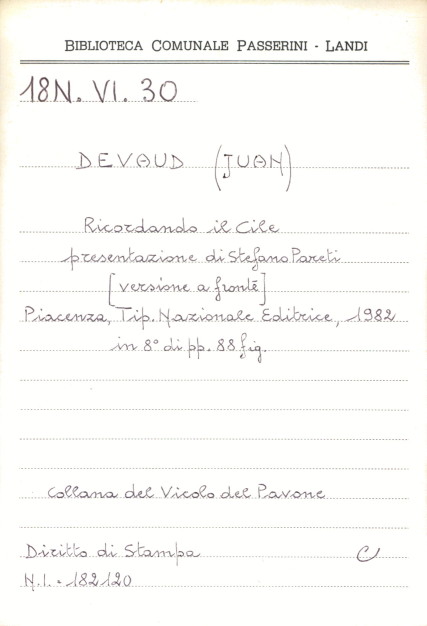 BIBLIOTECA COMUNALE PASSERINI - LANDI
18N. VI. 30
DEVAUD (JUAN)
Ricordando il Cile
presentazione di Stefano Pareti
[versione a fronte]
Piacenza, Tip. Nazionale Editrice, 1982
in 8° di pp. 88 fig.
Collana del Vicolo del Pavone
Diritto di Stampa
N.I. - 182120